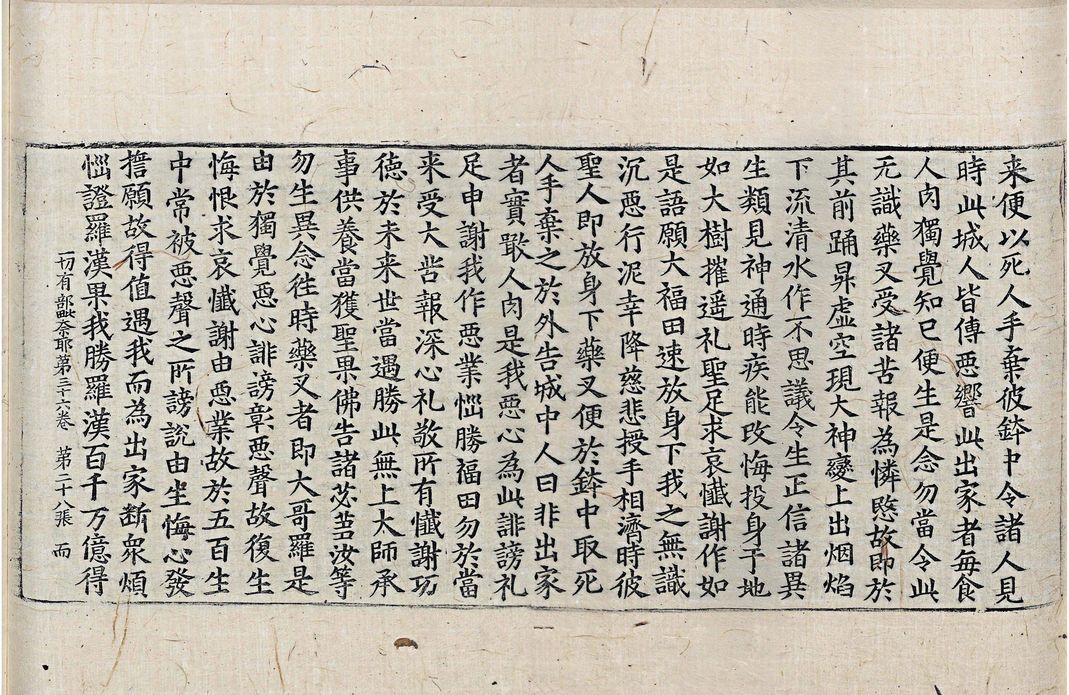 来便以死人手棄彼鉢中令諸人見
時此城人皆傳悪響此出家者每食
人肉獨覺知已便生是念勿當令此
无識藥叉受諸苦報為憐愍故即於
其前踊昇虚空現大神變上出烟焰
下流清水作不思議令生正信諸異
生類見神通時疾能改悔投身于地
如大樹摧遥礼聖足求哀懺謝作如
是語願大福田速放身下我之無識
沉悪行泥幸降慈悲授手相濟時彼
聖人即放身下藥叉便於鉢中取死
人手棄之於外告城中人曰非出家
者實敢人肉是我悪心為此誹謗礼
足申謝我作悪業惱勝福田勿於當
来受大苦報深心礼敬所有懺謝功
徳於未来世當遇勝此無上大師承
事供養當獲聖果佛告諸苾芻汝等
勿生異念徃時藥叉者即大哥羅是
由於獨覺悪心誹謗彰悪聲故復生
悔恨求哀懺謝由悪業故於五百生
中常被悪聲之所謗說由生悔心發
擔願故得值遇我而為出家断衆煩
惱證羅漢果我勝羅漢百千万億得
一切有部毗奈耶第三十六卷 第二十八張 而